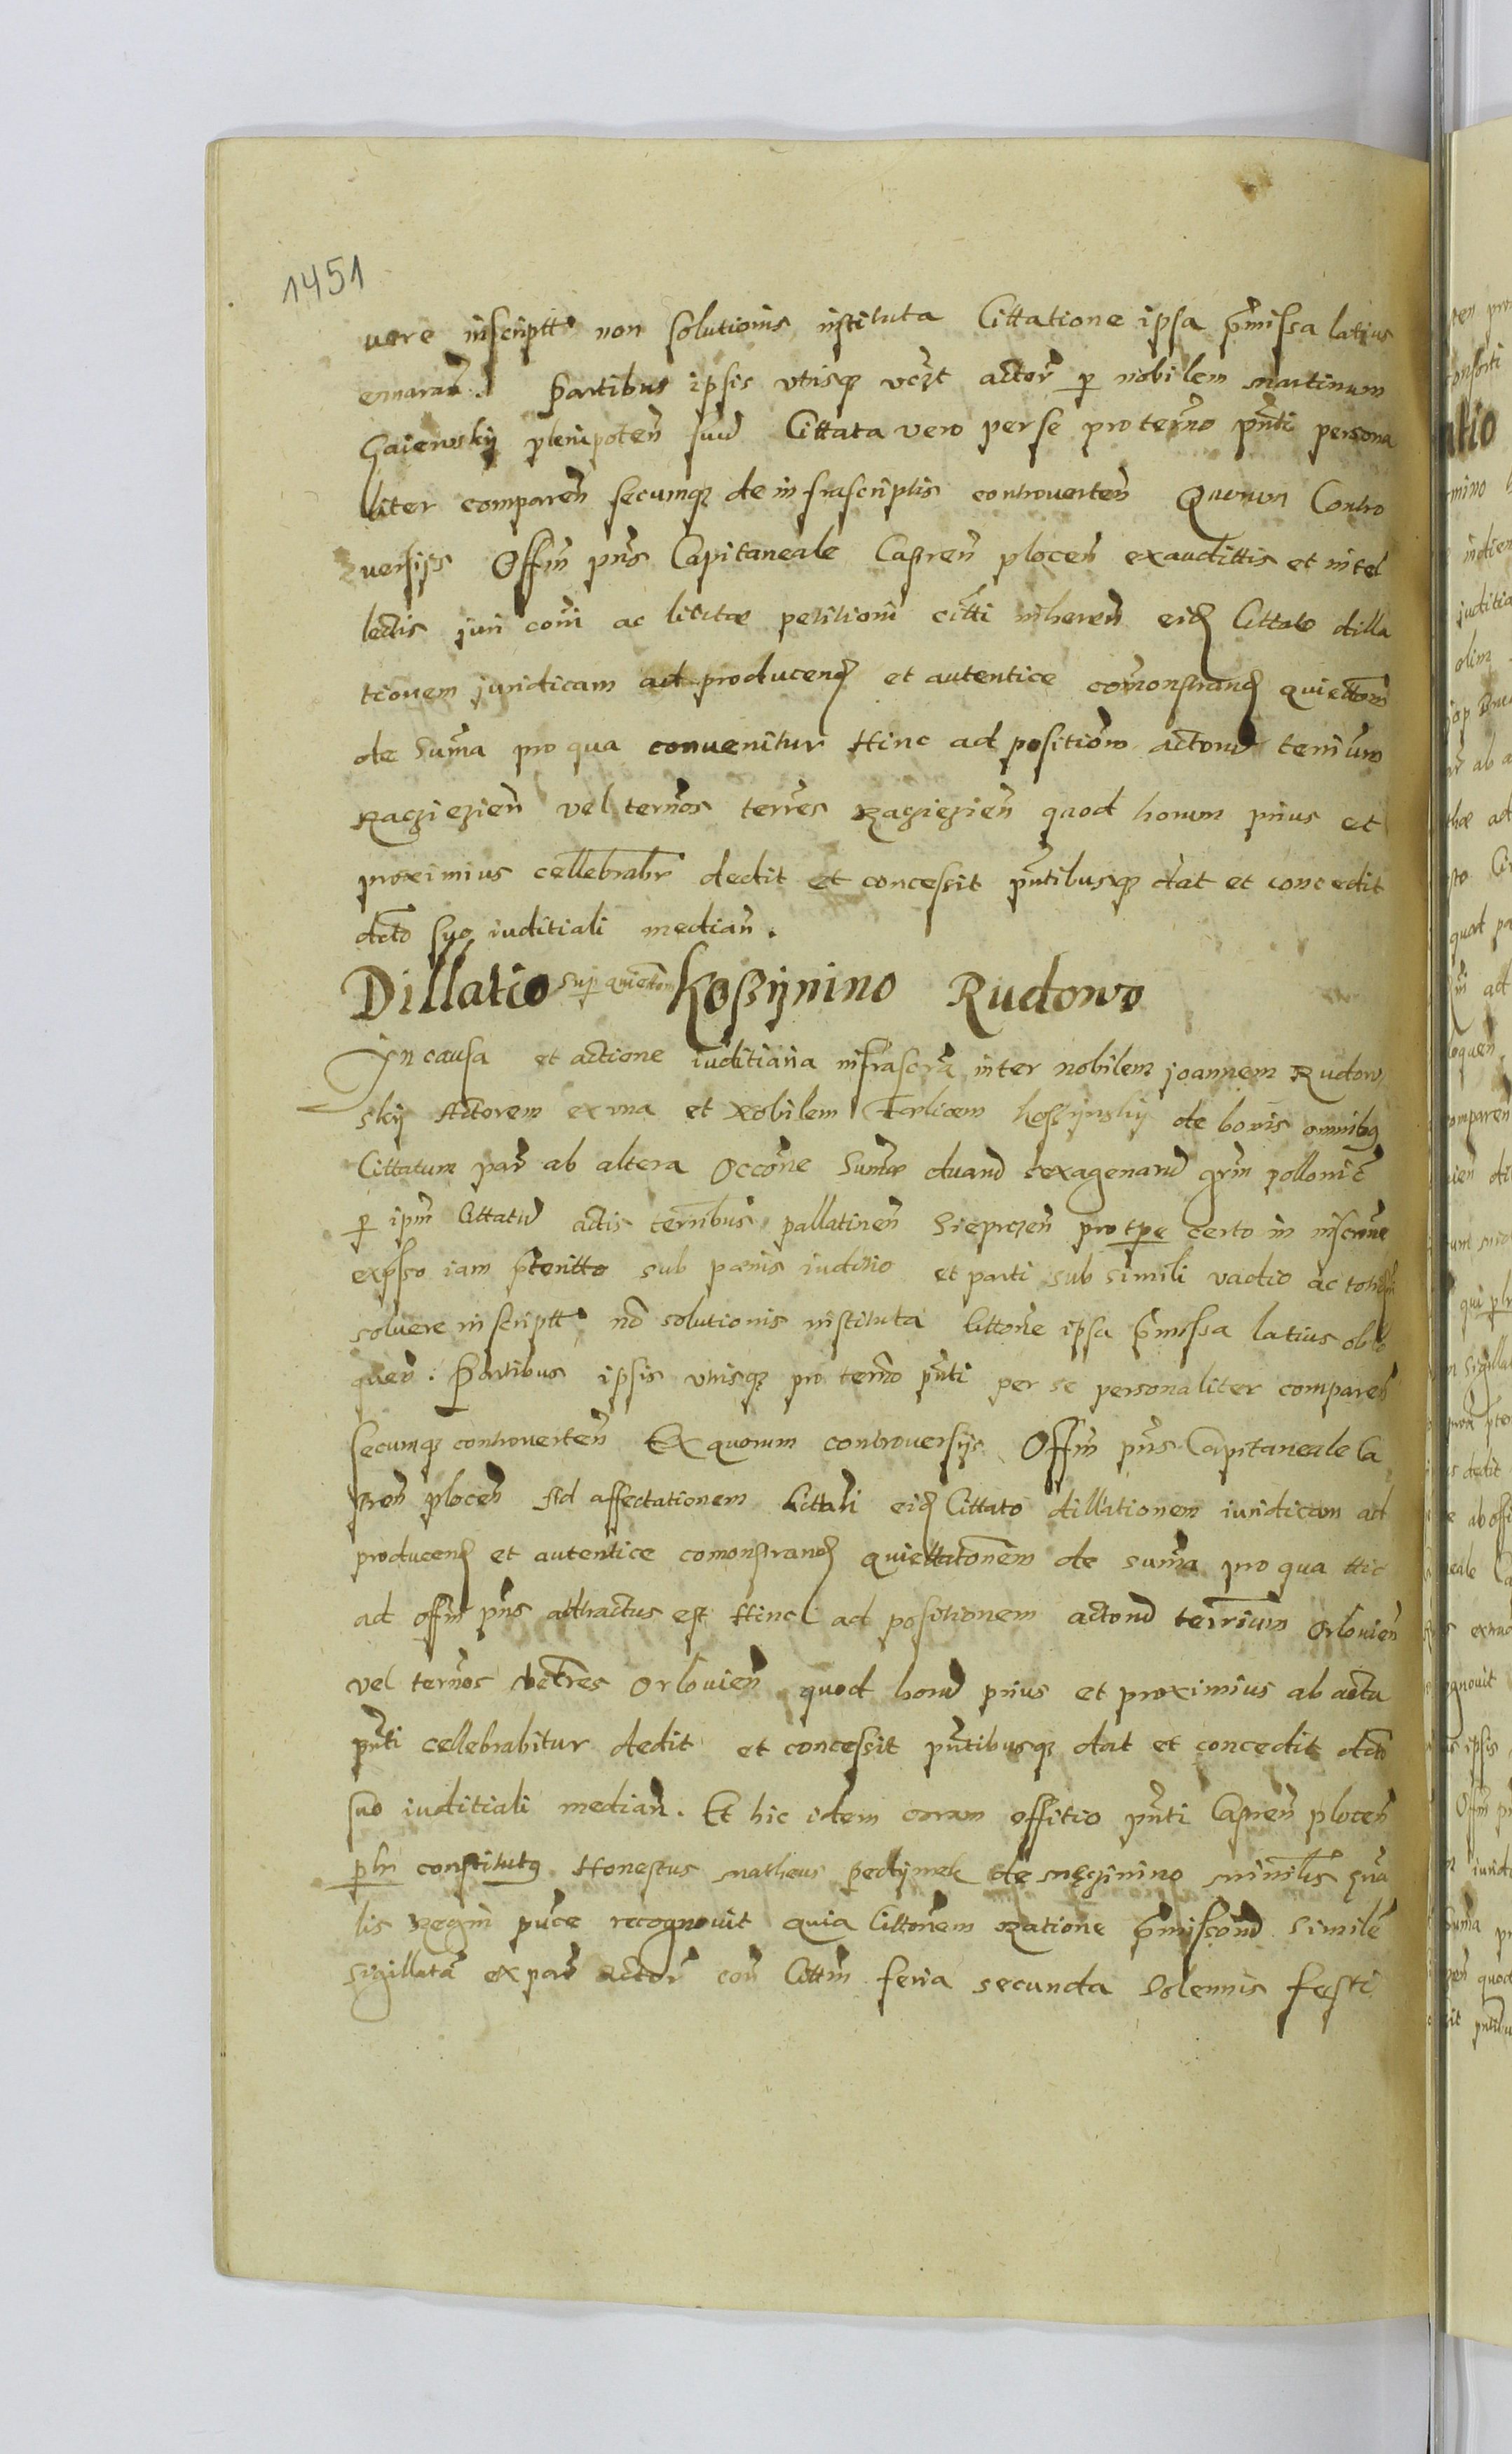 1451
uere inscriptt non solutionis instituta Cittatione ipsa p̃missa latius
ennarat. Partibus ipsis vtrisq vczt actor p nobilem Martinum
Gaiewskij plenipoteñ suu Cittata vero per se pro termo pñti persona
liter compareñ secumq de infrascriptis controuerteñ Quorum Contro
uersijs Offm pñs Capitaneale Castreñ ploceñ exaudittis et intel
lectis juri com̃i ac licitæ petitioni citti inhereñ eid Cittato dilla
tionem juridicam ad producend et autentice com̃onstrand quiettom̃
de Sum̃a pro qua conuenitur Hinc ad positiom̃ actorum termum
Raczieziẽn vel termos terres Racziezieñ quod horum prius et
proximius cellebrabr dedit et concessit pñtibusq dat et concedit
dcto suo iuditiali mediañ.
Dillatio sup quiettom Koßijnino Rudowo
In causa et actione iuditiaria infrascra inter nobilem joannem Rudow
skij Actorem ex vna et Nobilem Koßijnskij de bonis omnibq
Cittatum par ab altera Occõne Summæ duaru sexagenaru grm polloni͠c
p ipm Cittatu actis terribus pallatineñ Sieprczeñ pro tpe certo in inscrone
expsso iam pteritto sub pœnis iuditio et parti sub simili vadio ac totid
soluere inscriptt nõ solutionis instituta Cittone ipsa p̃missa latius oblo
queñ: Partibus ipsis vtrisq pro termo pñti per se personaliter compareñ
secumq controuerteñ Ex quorum controuersijs Offm pñs Capitaneale Ca
streñ ploceñ Ad affectationem Cittati eid Cittato dillationem iuridicam ad
producend et autentice comonstrand quiettatonem de sum̃a pro qua Hic
ad offm pñs attractus est Hinc ad positionem actoru terrium Orlouieñ
vel termos terres Orlouieñ quod horu prius et proximius ab actu
pñti cellebrabitur dedit et concessit pñtibusq dat et concedit dcto
suo iuditiali mediañ. Et hic idem coram offitio pñti Castreñ ploceñ
plr constitutq Honestus Matheus pedijmek de ministlis gña
lis Regni puce recognouit quia Cittonem Ratione p̃missoru similẽ
sigillatã ex par Actor con Cittm feria secunda Solennis festi